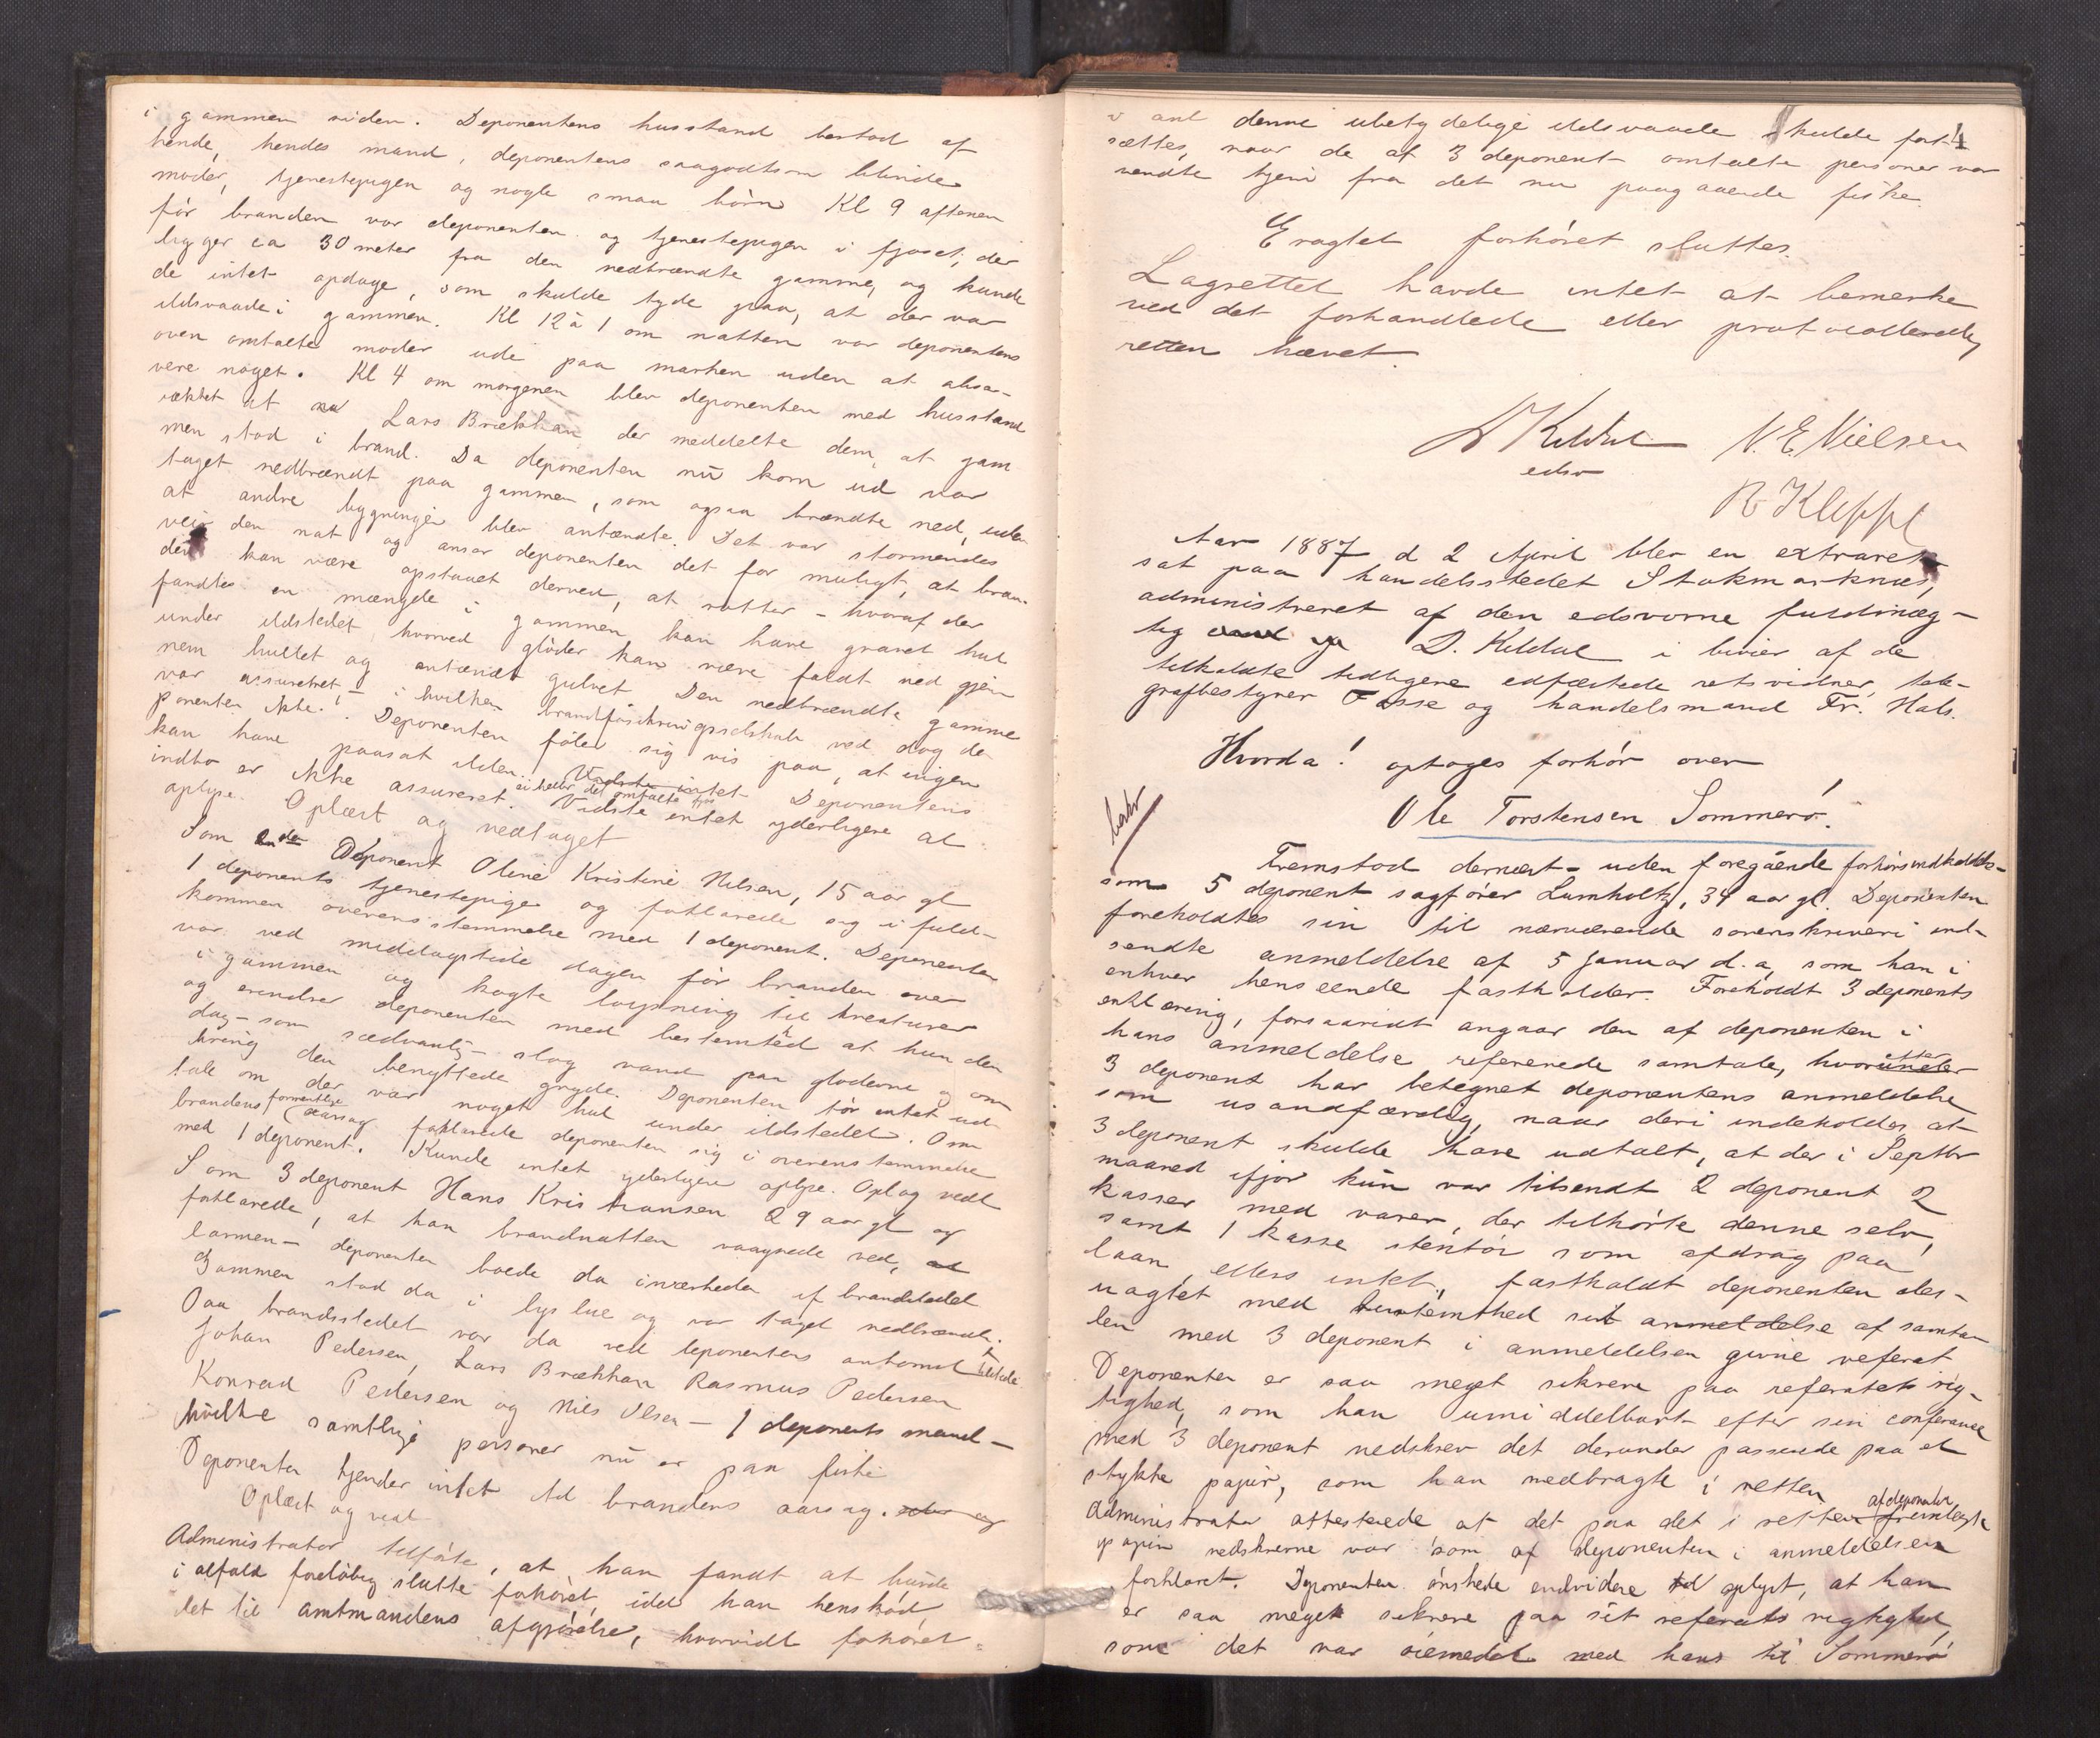 i gammen siden. Deponentens husstand bestod af
hende, hendes mand, deponentens saagodtsom blinde
moder, tjenestepigen og nogle smaa børn Kl 9 aftenen
før branden var deponenten og tjenestepigen i fjøset, der
ligger ca 30 meter fra den nedbrændte gamme, og kunde
de intet opdage, som skulde tyde paa, at der var
ildsvaade i gammen. Kl 12 à 1 om natten var deponentens
oven omtalte moder ude paa marken uden at obser-
vere noget. Kl 4 om morgenen blev deponenten med husstand
vækket af Lars Brækkan der meddelte dem, at gam
men stod i brand. Da deponenten nu kom ud var
taget nedbrændt paa gammen, som ogsaa brændte ned, uden
at andre bygninger blev antændte. Det var stormendes
veir den nat og anser deponenten det for muligt, at bran-
den kan være opstaaet derved, at rotter – hvoraf der
fandtes en mængde i gammen kan have gravet hul
under ildstedet hvorved gløder kan være faldt ned gjen
nem hullet og antændt gulvet Den nedbrændte gamme
var assureret, – i hvilken brandforsikringsselskab ved dog de
ponenten ikke. Deponenten føler sig vis paa, at ingen
kan have paasat ilden. Vidste intet Deponentens
indbo er ikke assureret. ei heller det omtalte fjøs Vidste intet yderligere at
oplyse. Oplæst og vedtaget
Som 2de Deponent Oline Kristine Nilsen, 15 aar gl
1 deponents tjenestepige og forklarede sig i fuld-
kommen overensstemmelse med 1 deponent. Deponenten
var ved middagstide dagen før branden over
i gammen og kogte løypning til kreaturer
og erindrer deponenten med bestemthed at hun den
dag – som sædvanlig – slog vand paa gløderne og om
kring den benyttede gryde. Deponenten tør intet ud-
tale om der var noget hul under ildstedet. Om
brandens formentlige aarsag forklarede deponenten sig i overensstemmelse
med 1 deponent. Kunde intet yderligere oplyse. Opl og vedt
Som 3 deponent Hans Kristiansen 29 aar gl og
forklarede, at han brandnatten vaagnede ved, at
larmen – deponenten boede da i nærheden af brandstedet
Gammen stod da i lys lue og var taget nedbrændt.
Paa brandstedet var da ved deponentens ankomst tilstede
Johan Pedersen, Lars Brækkan Rasmus Pedersen
Konrad Pedersen og Nils Olsen – 1 deponents mand –
hvilke samtlige personer nu er paa fiske
Deponenten kjender intet til brandens aarsag.
Oplæst og vedt
Administrator tilførte, at han fandt at burde
i alfald foreløbig slutte forhøret, idet han henskød
det til amtmandens afgjørelse, hvorvidt forhøret
4
i anl denne ubetydelige ildsvaade skulde fort-
sættes, naar de af 3 deponent omtalte personer var
vendte hjem fra det nu paagaaende fiske.
Eragtet forhøret sluttes.
Lagrettet havde intet at bemerke
ved det forhandlede eller protocollerede,
retten hævet.
D Kildal N. E. Nielsen
edsv
R Kleppe
Aar 1887 d 2 April blev en extraret
sat paa handelsstedet Stokmarknæs,
administreret af den edsvorne fuldmæg-
tig D. Kildal i bivær af de
tilkaldte tidligere edfæstede retsvidner, tele-
grafbestyrer Fosse og handelsmand Fr. Hals.
Hvorda! optoges forhør over
Ole Torstensen Sommerø.
Fremstod dernæst – uden foregående forhørsindkaldelse –
som 5 deponent sagfører Lumholtz, 34 aar gl. Deponenten
foreholdtes sin til nærværende sorenskriveri ind-
sendte anmeldelse af 5 Januar d. a, som han i
enhver henseende fastholder. Foreholdt 3 deponents
erklæring, forsaavidt angaar den af deponenten i
hans anmeldelse refererede samtale, hvorunder efter
3 deponent har betegnet deponentens anmeldelse
som usandfærdig, naar deri indeholdes at
3 deponent skulde have udtalt, at der i Septbr
maaned ifjor kun var tilsendt 2 deponent 2
kasser med varer, der tilhørte denne selv,
samt 1 kasse stentøi som afdrag paa
laan, ellers intet, fastholdt deponenten des-
uagtet med bestemthed sit anmeldelse af samta-
len med 3 deponent i anmeldelsen givne referat
Deponenten er saa meget sikrere paa referatets rig-
tighed, som han umiddelbart efter sin conferance
med 3 deponent nedskrev det derunder passerede paa et
stykke papir, som han medbragte i retten
Administrator attesterede at det paa det i retten af deponenten fremlagte
papir nedskrevne var som af deponenten i anmeldelsen
forklaret. Deponenten ønskede endvidere oplyst, at han
er saa meget sikrere paa sit referats rigtighed,
som det var øiemedet med hans til Sommerø